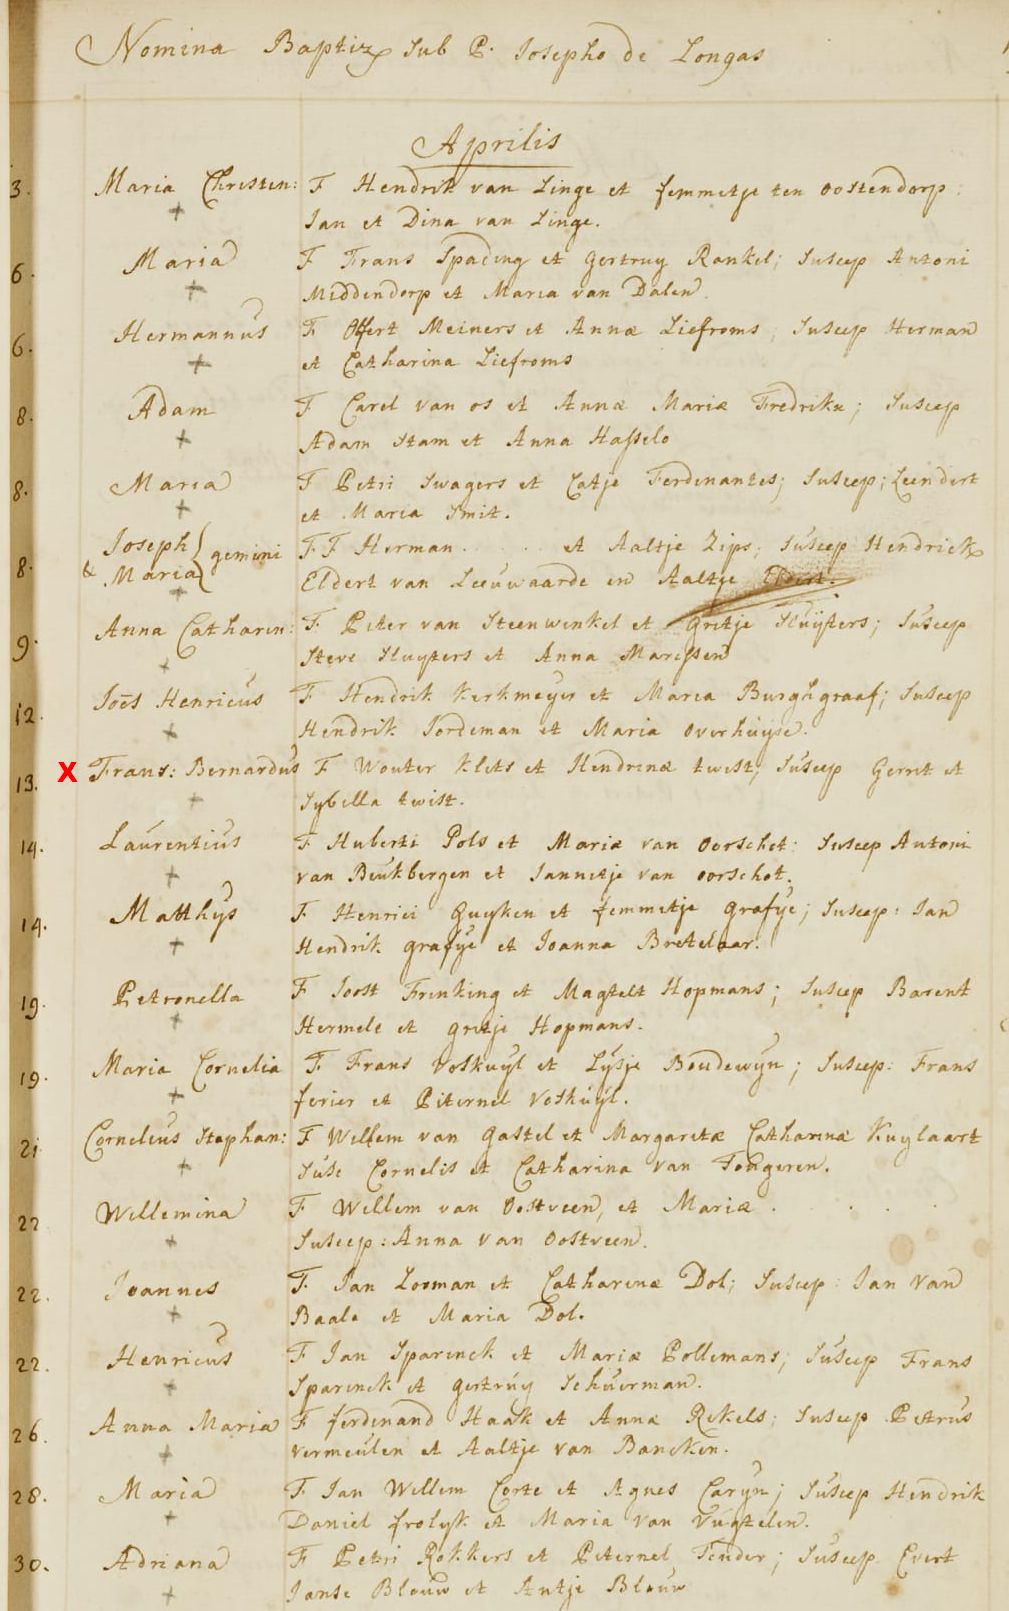 Nomina Baptiz sub P. Josepho de Longas
Aprilis
3. Maria Christin: F Hendrik van Linge et femmetje ten Oostendorp.
+ Jan et Dina van Linge.
6. Maria F Frans Spading et Gertruy Rankel; Suscep Antoni
+ Middendorp et Maria van Dalen.
6. Hermannus F Offert Meiners et Annæ Liefroms; Suscep Herman
+ et Catharina Liefroms
8. Adam F Carel van os et Annæ Mariæ Fredrikx; Suscep
+ Adam Stam et Anna Hasselo
8. Maria F Petri Swagers et Catje Ferdinantes; Suscep; Leendert
+ et Maria Smit.
8. Joseph & Maria gemini FF Herman . . . . et Aaltje Zips; Suscep Hendrick
+ Eldert van Leeuwaarde en Aaltje Eldert.
9. Anna Catharin: F. Peter van Steenwinkel et Gritje Sluÿters; Suscep
+ Steve Sluyters et Anna Marissen
12. Joēs Henricus F Hendrik Kerkmeyer et Maria Burghgraaf; Suscep
+ Hendrik Jordeman et Maria Overhuyse.
13. X Frans: Bernardus F Wouter Klets et Hendrinæ twist; Suscep Gerrit et
+ Sybilla twist.
14. Laurentius F Huberti Pols et Mariæ van Oorschot: Suscep Antoni
+ van Beukbergen et Jannetje van oorschot.
14. Matthÿs F. Henrici Quyken et femmetje grafÿe; Suscep: Jan
+ Hendrik grafÿe et Joanna Bretelaar.
19. Petronella F Joost Frinking et Magtelt Hopmans; Suscep Barent
+ Hermele et gritje Hopmans.
19. Maria Cornelia F Frans Voskuyl et Lÿsje Boudewÿn; Suscep: Frans
+ ferier et Piternel Voskuÿl.
21 Cornelius Stephan: F Willem van Gastel et Margaretæ Catharinæ Kuylaart
+ Susc Cornelis et Catharina van Tongeren.
22 Willemina F Willem van Oostveen, et Mariæ . . . .
+ Suscep: Anna van Oostveen.
22. Joannes F. Jan Looman et Catharinæ Dol; Suscep: Jan van
+ Baale et Maria Dol.
22. Henricus F Jan Sparinck et Mariæ Pollemans; Suscep Frans
+ Sparinck et gertruy Schuerman.
26. Anna Maria F ferdinand Haak et Annæ Rekels; Suscep Petrus
+ vermeulen et Aaltje van Bancken.
28. Maria F Jan Willem Corte et Agnes Carÿn; Suscep Hendrik
+ Daniel frolyk et Maria van Vugtelen.
30. Adriana F Petri Rokkers et Piternel Tender; Suscep Evert
+ Janse Blouw et Antje Blouw